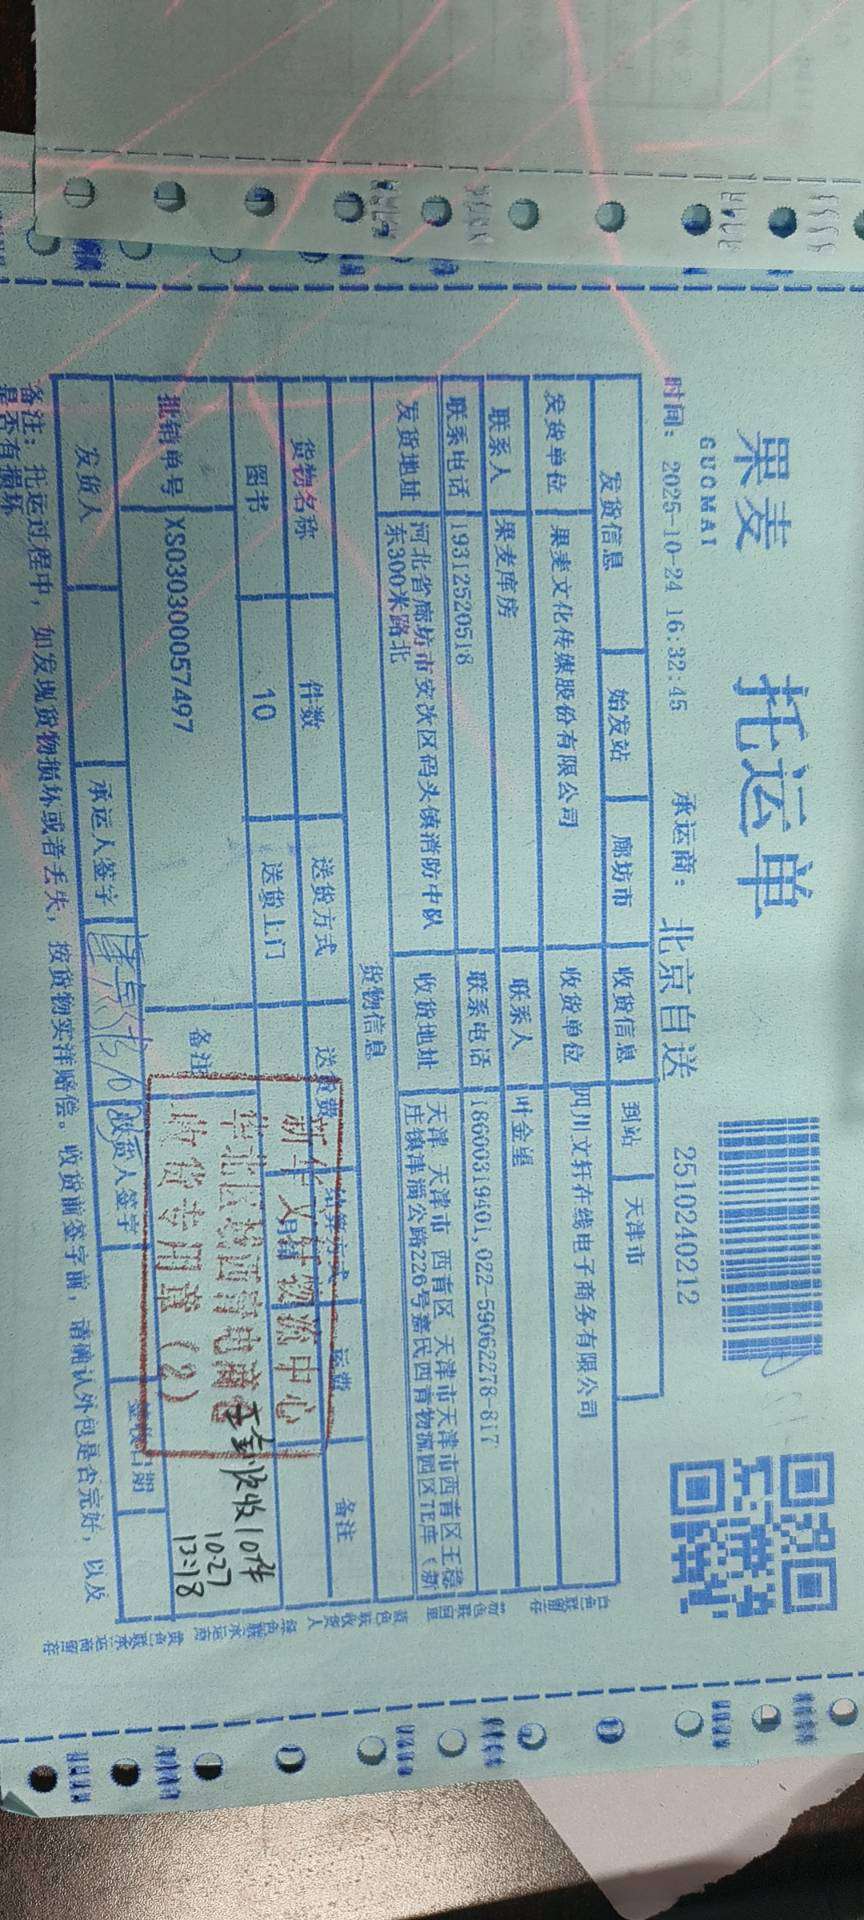 果麦 托运单
GUOMAI
时间: 2025-10-24 16:32:45 承运商: 北京自送 2510240212
发货信息 始发站 廊坊市 收货信息 到站 天津市
发货单位 果麦文化传媒股份有限公司 收货单位 四川文轩在线电子商务有限公司
联系人 果麦库房 联系人 叶金星
联系电话 19312520518 联系电话 18600319401,022-59062278-817
发货地址 河北省廊坊市安次区码头镇消防中队 收货地址 天津 天津市 西青区 天津市天津市西青区王稳
东300米路北 庄镇津涞公路226号嘉民西青物流园区7E库（新
货物信息
货物名称 件数 送货方式 送货费 结算方式 运费 备注
图书 10 送货上门 月结
批销单号 XS030300057497 备注
新华文轩物流中心
收货专用章（2）
收10件
10.27
13:18
发货人 承运人签字 收货人签字 签收日期
备注: 托运过程中, 如发现货物损坏或者丢失, 按货物实洋赔偿。收货前签字前, 请确认外包是否完好, 以及
是否有损坏